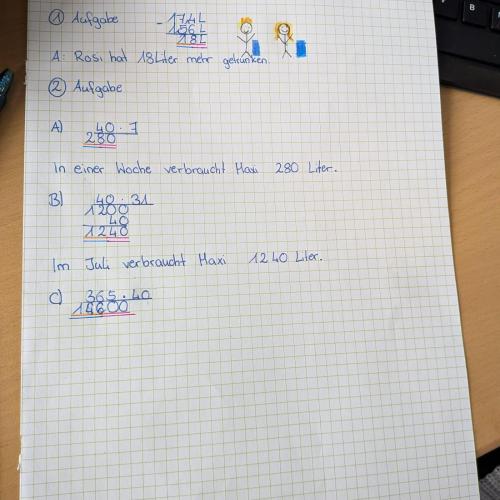 ① Aufgabe
- 174L
156L
18L
A: Rosi hat 18Liter mehr getrunken.
② Aufgabe
A) 40 · 7
280
In einer Woche verbraucht Maxi 280 Liter.
B) 40 · 31
1200
40
1240
Im Juli verbraucht Maxi 1240 Liter.
C) 365 · 40
14600